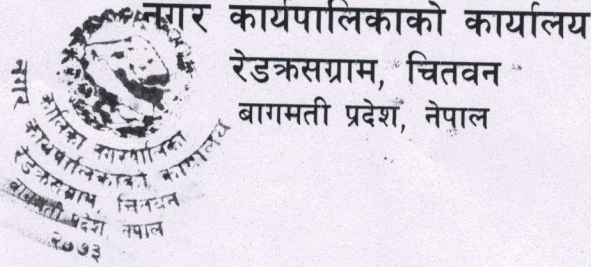 नगर कार्यपालिकाको कार्यालय
रेडक्रसग्राम, चितवन
बागमती प्रदेश, नेपाल
नगर
कालिका नगरपालिका
कार्यपालिकाको कार्यालय
रेडक्रसग्राम चितवन
बागमती प्रदेश नेपाल
२०७३